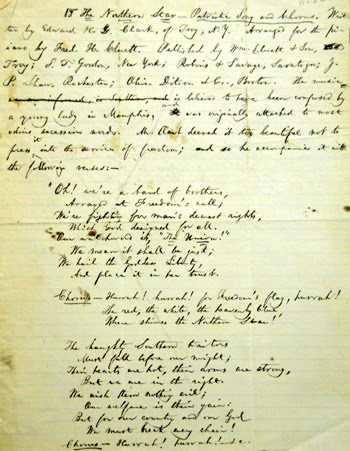 The Northern Star — Patriotic Song and Chorus. Writ-
ten by Edward H. G. Clark, of Troy, N.Y. Arranged for the pi-
ano by Fred. H. Cluett. Published by Wm. Cluett & Son,
Troy; S. T. Gordon, New York; & Savage, Saratoga; J.
P. Shaw, Rochester; Oliver Ditson & Co., Boston. The music
is believed to have been composed by
a young lady in Memphis, was originally attached to most
odious secession words. Mr. deemed it too beautiful not to
press it into the service of freedom; and so he accompanies it with
the following verses:—
"Oh! we're a band of brothers,
Arrayed at Freedom's call,
We're fighting for man's dearest rights,
Which God designed for all.
Our watchword is, "The Union!"
We mean it shall be just;
We hail the Goddess Liberty,
And place it in her trust.
Chorus — Hurrah! hurrah! for Freedom's flag, hurrah!
The red, the white, the heavenly blue
Where shines the Northern Star!
The haughty Southern traitors
Must fall before our might;
Their hearts are hot, their arms are strong,
But we are in the right.
We wish them nothing evil;
Our welfare is their gain:
But for our country and our God
We must break every chain!
Chorus — Hurrah! hurrah! &c.